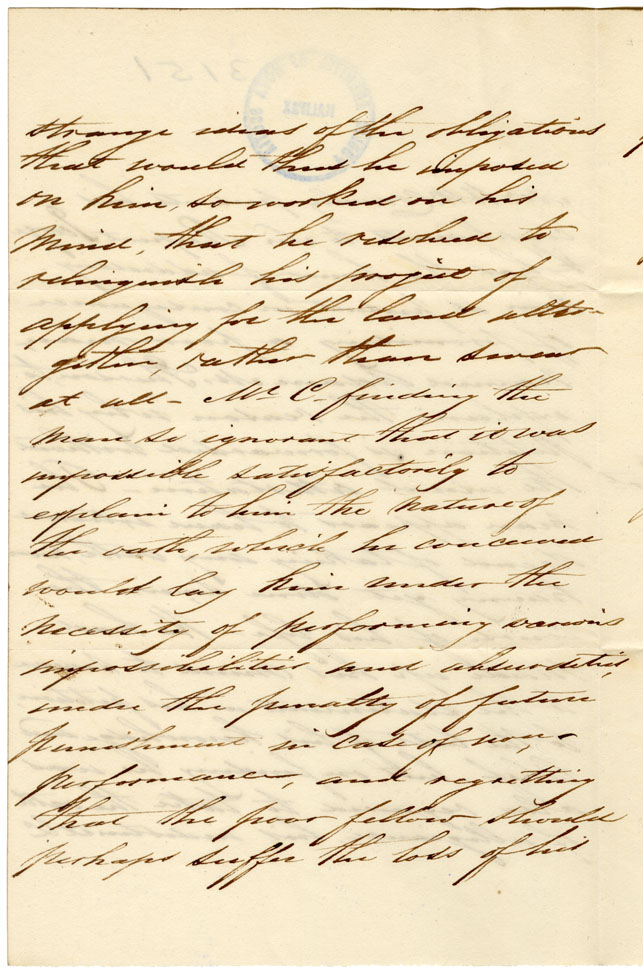 strange ideas of the obligations
that would thus be imposed
on him, so worked on his
mind, that he resolved to
relinquish his project of
applying for the land alto-
gether, rather than swear
at all - Mr. C. finding the
man so ignorant that it was
impossible satisfactorily to
explain to him the nature of
the oath, which he conceived
would lay him under the
necessity of performing various
impossibilities and absurdities,
under the penalty of future
punishment in case of non-
performance, and regretting
that the poor fellow should
perhaps suffer the loss of his